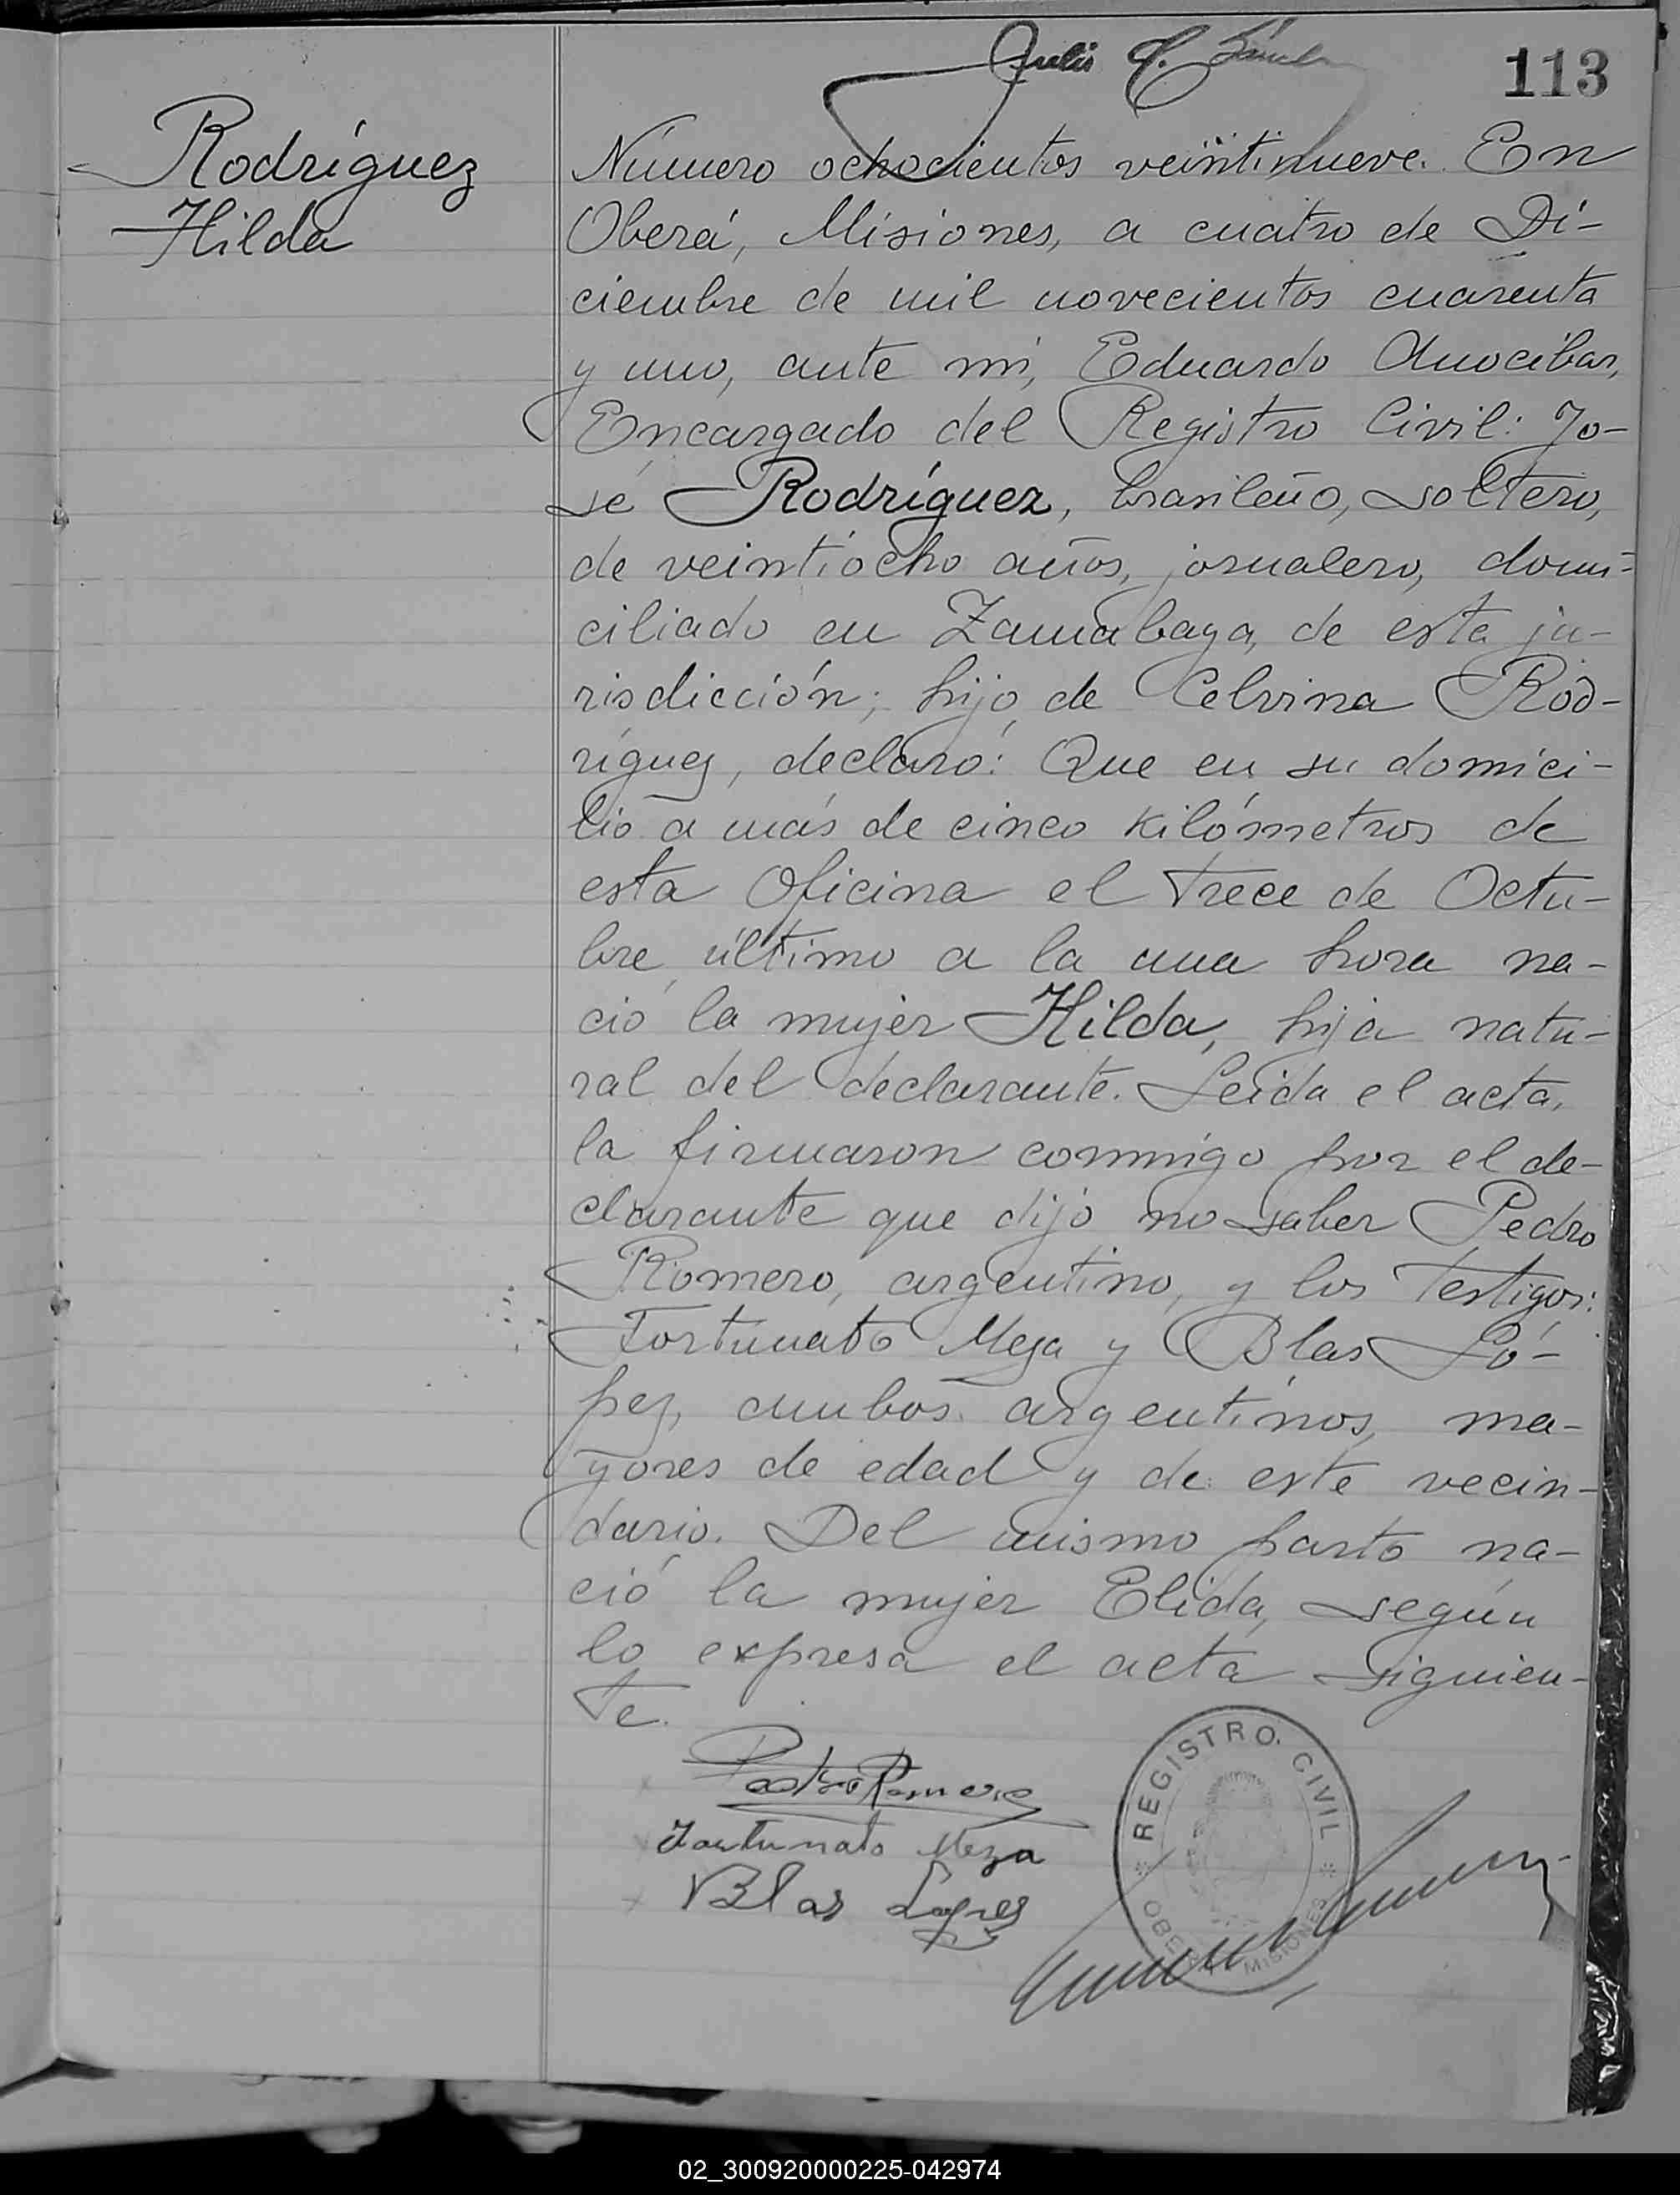 113
Rodríguez
Hilda
Número ochocientos veintinueve. En
Oberá, Misiones, a cuatro de Di-
ciembre de mil novecientos cuarenta
y uno, ante mi, Eduardo Anocibar,
Encargado del Registro Civil: Jo-
sé Rodríguez, brasileño, soltero,
de veintiocho años, jornalero, domi-
ciliado en Zamabaya, de esta ju-
risdicción; hijo de Celvina Rod-
ríguez, declaró: Que en su domici-
lio a más de cinco kilómetros de
esta Oficina el trece de Octu-
bre último a la una hora na-
ció la mujer Hilda, hija natu-
ral del declarante. Leida el acta,
la firmaron conmigo por el de-
clarante que dijo no saber Pedro
Romero, argentino, y los testigos:
Fortunato Meza y Blas Ló-
pez, ambos argentinos, ma-
yores de edad y de este vecin-
dario. Del mismo parto na-
ció la mujer Elida, según
lo expresa el acta siguien-
te.
Pedro Romero
Fortunato Meza
Blas Lopez
REGISTRO CIVIL
OBERÁ MISIONES
02_300920000225-042974